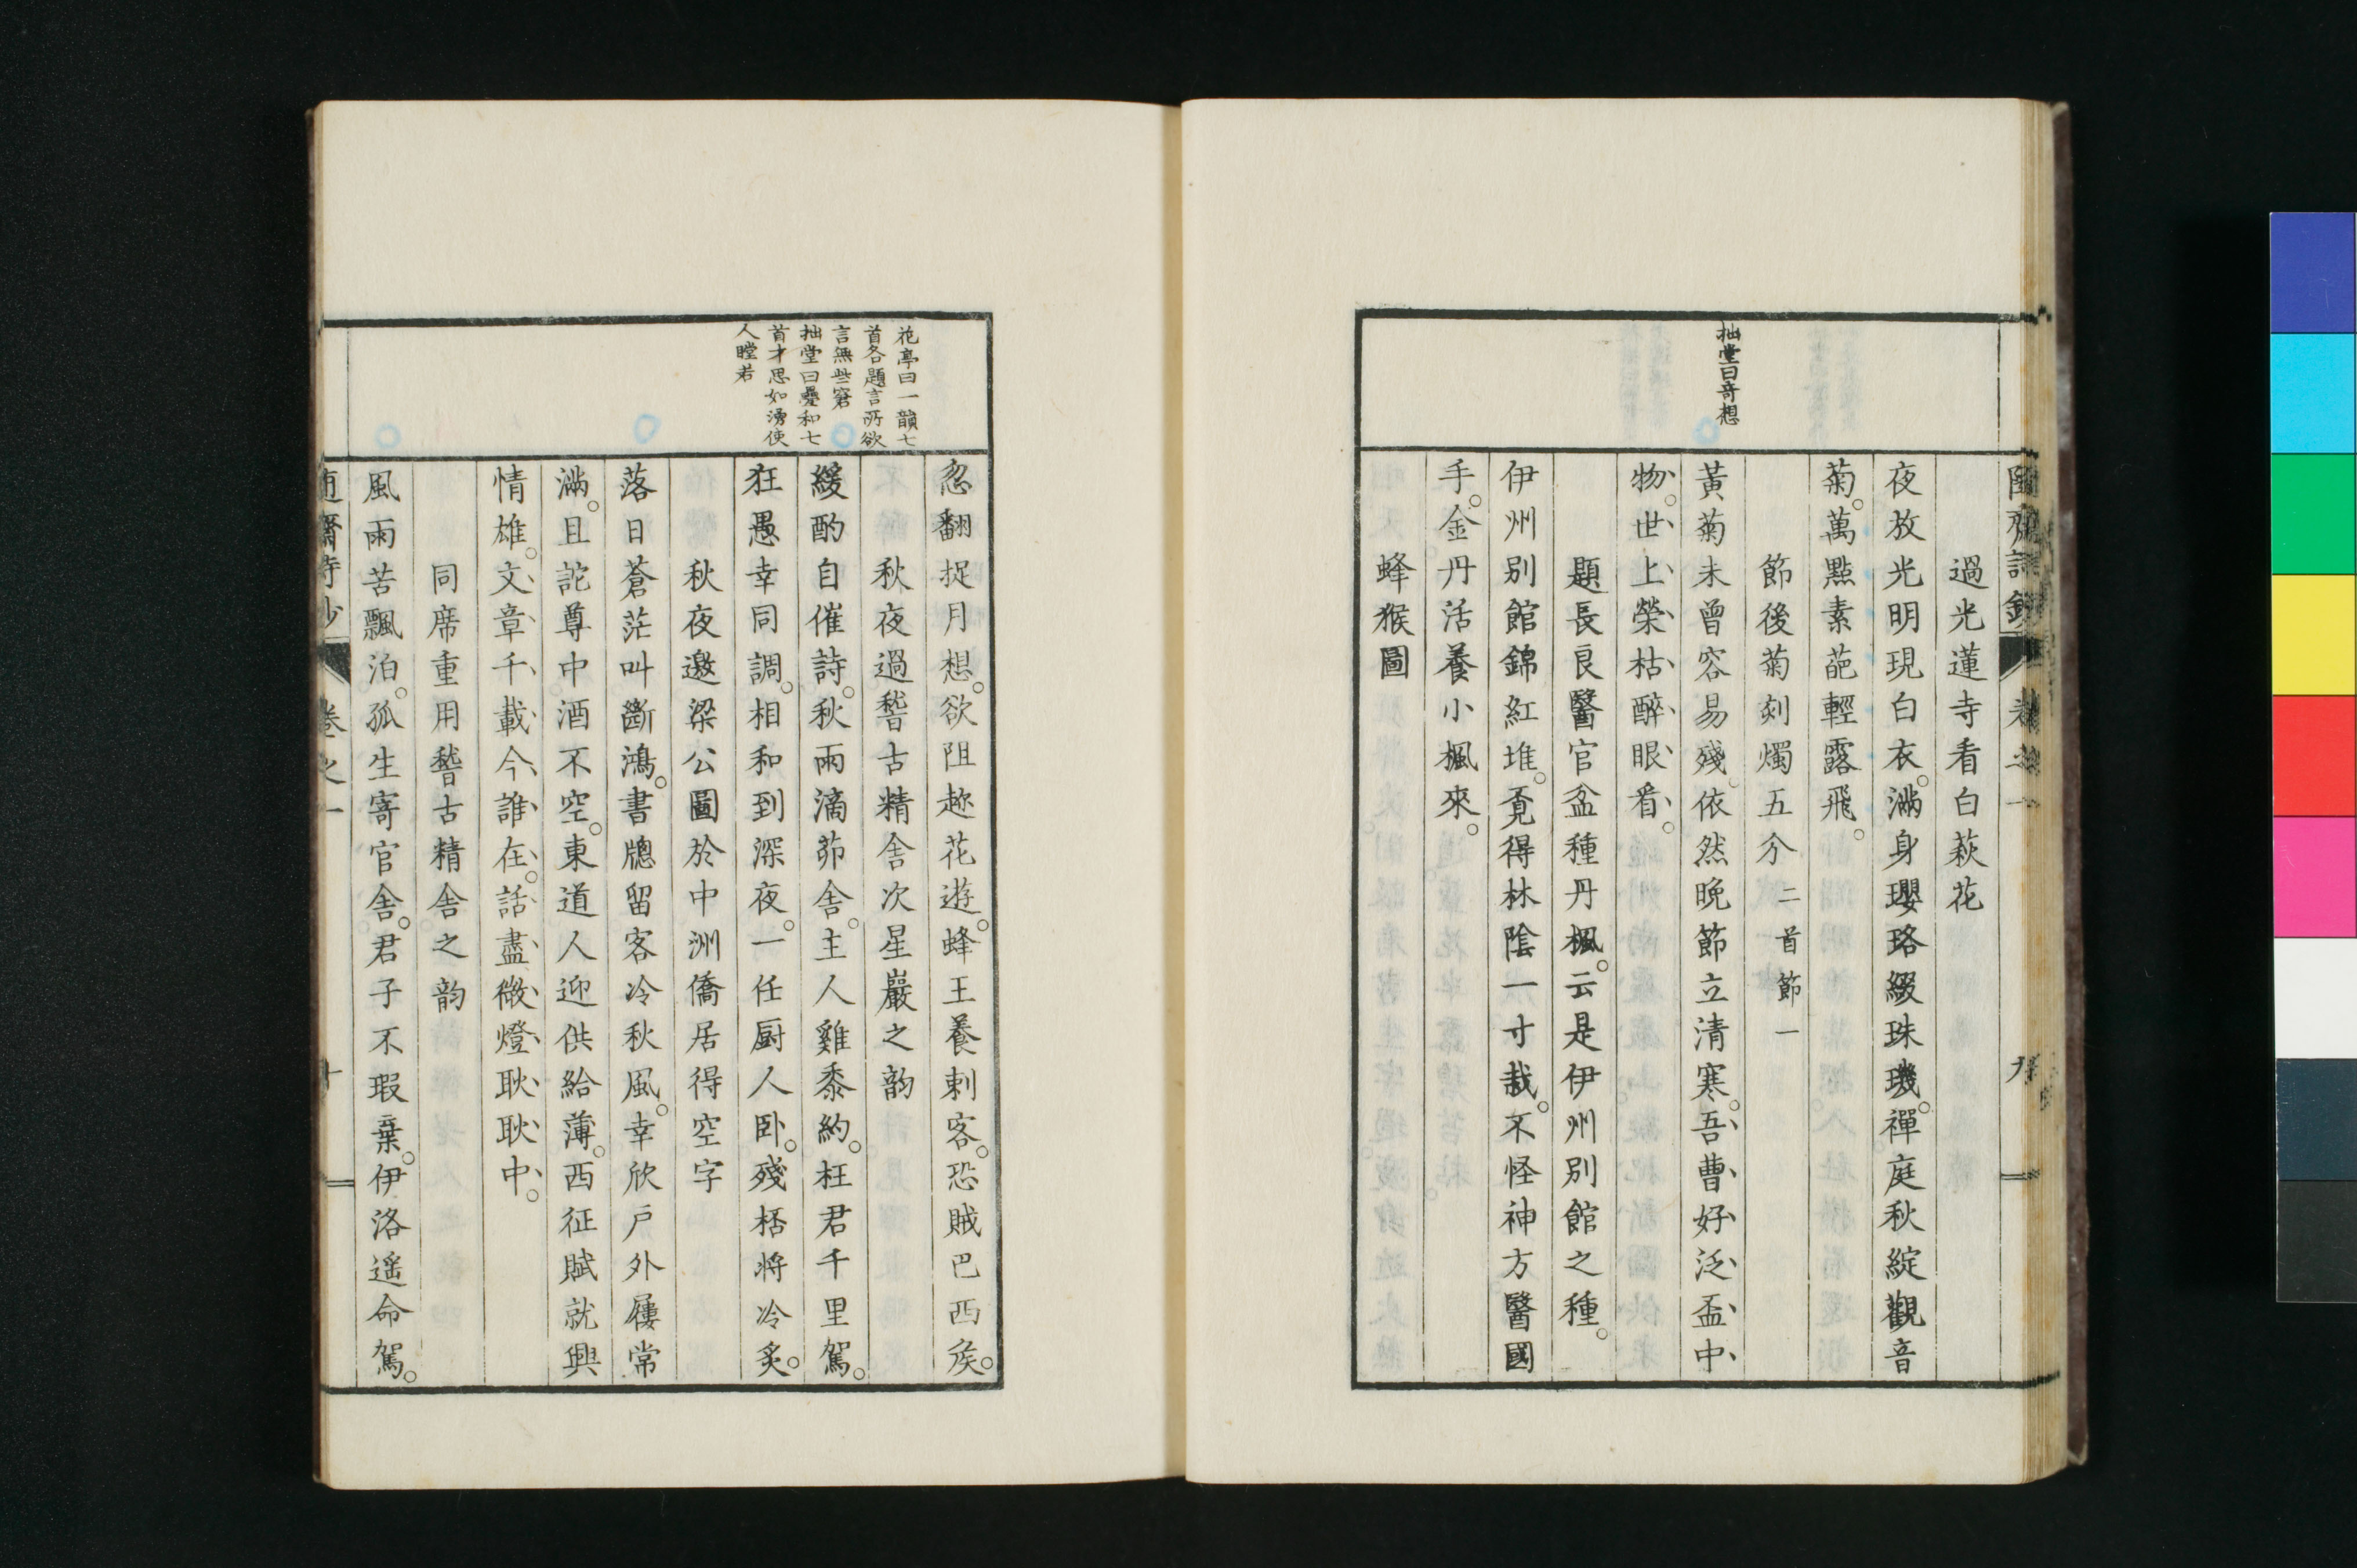 拙堂曰奇想
過光蓮寺看白萩花
夜放光明現白衣。滿身瓔珞綴珠璣。禪庭秋綻觀音
菊。萬點素葩輕露飛。
節後菊刻燭五分 二首節一
黃菊未曾容易殘。依然晚節立清寒。吾曹好泛盃中
物。世上榮枯醉眼看。
題長良醫官盆種丹楓。云是伊州別館之種。
伊州別館錦紅堆。覔得林陰一寸栽。不怪神方醫國
手。金丹活養小楓來。
蜂猴圖
花亭曰一韻七
首各題言所欲
言無些窘
拙堂曰疊和七
首才思如湧使
人瞠若
忽翻捉月想。欲阻趂花遊。蜂王養刺客。恐賊巴西矦。
秋夜過嵆古精舍次星巖之韵
緩酌自催詩。秋雨滴茆舍。主人雞黍約。枉君千里駕。
狂愚幸同調。相和到深夜。一任厨人臥。殘桮将冷炙。
秋夜邀梁公圖於中洲僑居得空字
落日蒼茫叫斷鴻。書牕留客冷秋風。幸欣戶外屨常
滿。且詑尊中酒不空。東道人迎供給薄。西征賦就興
情雄。文章千載今誰在。話盡微燈耿耿中。
同席重用嵆古精舍之韵
風雨苦飄泊。孤生寄官舍。君子不瑕棄。伊洛遥命駕。
卷之一